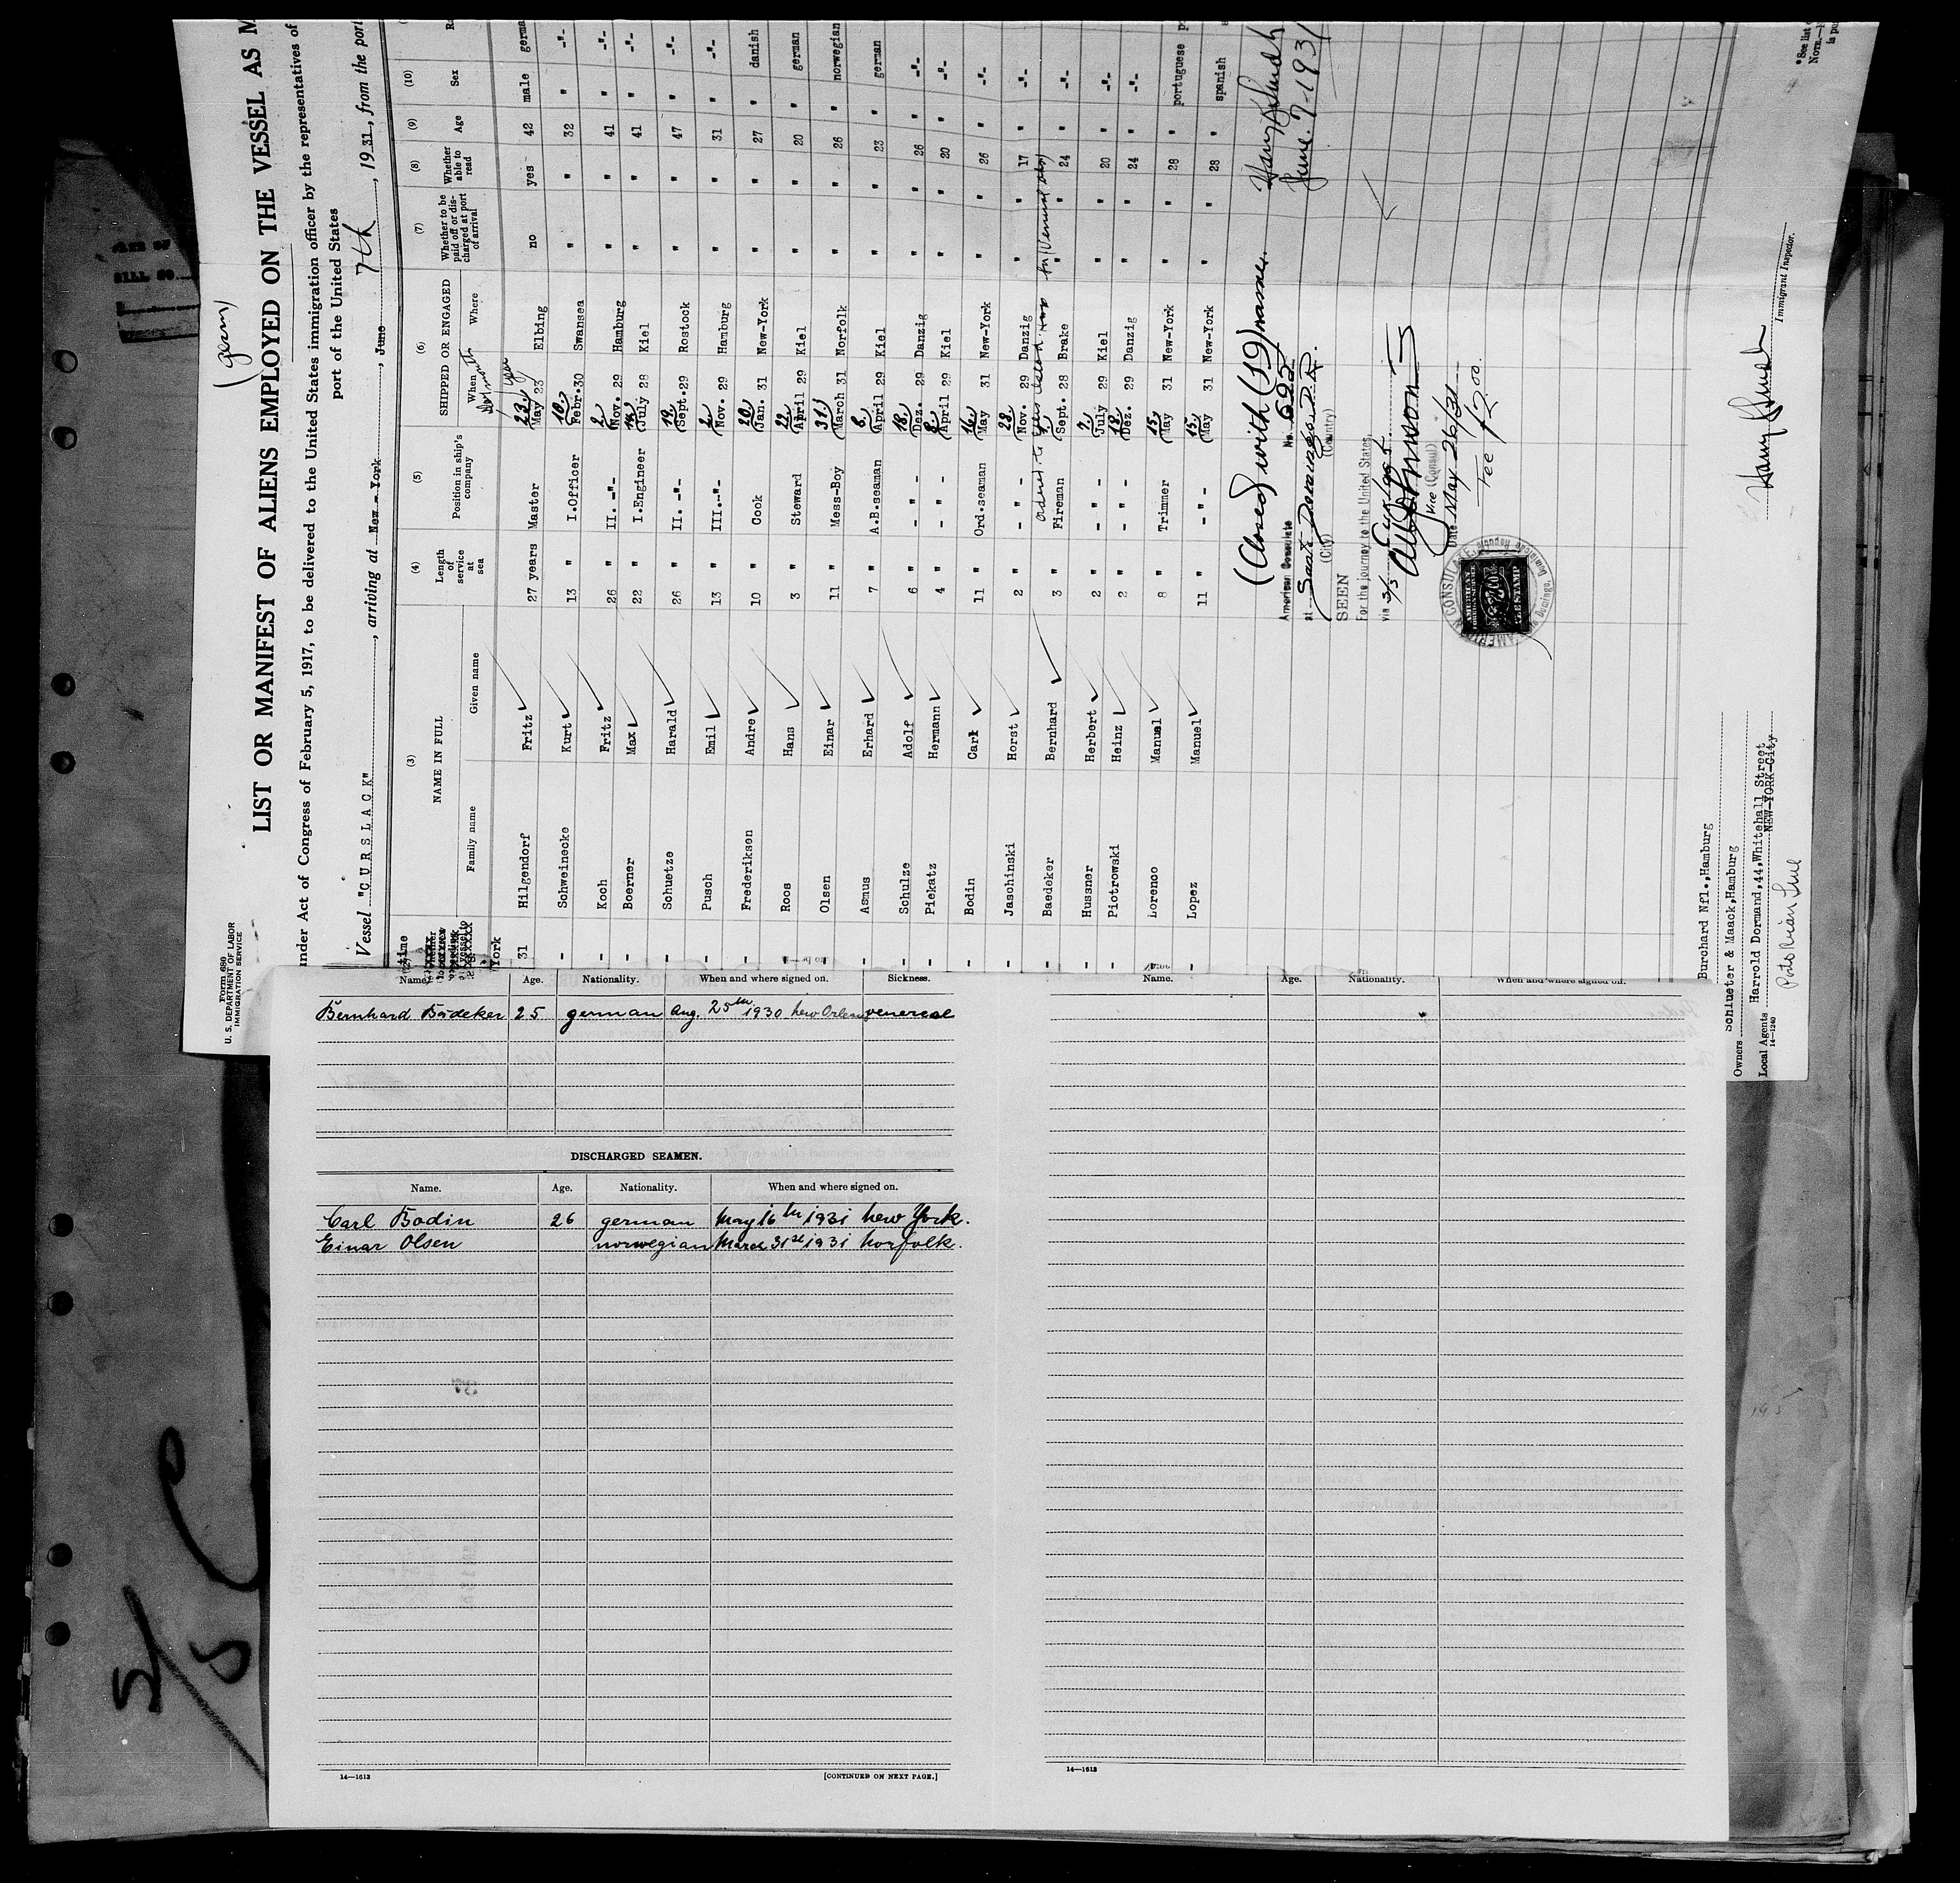 (germ)
LIST OR MANIFEST OF ALIENS EMPLOYED ON THE VESSEL AS M
under Act of Congress of February 5, 1917, to be delivered to the United States immigration officer by the representatives of
port of the United States
Vessel "CURSLACK", arriving at New-York, June 7th, 1931, from the port
Form 680
U. S. DEPARTMENT OF LABOR
IMMIGRATION SERVICE
(3) NAME IN FULL
Family name Given name
(4) Length of service at sea
(5) Position in ship's company
(6) SHIPPED OR ENGAGED
When Where
(7) Whether to be paid off or discharged at port of arrival
(8) Whether able to read
(9) Age
(10) Sex
York
31 Hilgendorf Fritz 27 years Master 23. May 23 Elbing no yes 42 male germa
- Schweinecke Kurt 13 " I.Officer 10. Febr.30 Swansea " " 32 " -"-
- Koch Fritz 26 " II. -"- 2. Nov. 29 Hamburg " " 41 " -"-
- Boerner Max 22 " I.Engineer July 28 Kiel " " 41 " -"-
- Schuetze Harald 26 " II. -"- 19. Sept.29 Rostock " " 47 " -"-
- Pusch Emil 13 " III.-"- 2. Nov. 29 Hamburg " " 31 " -"-
- Frederiksen Andre 10 " Cook 20. Jan. 31 New-York " " 27 " danish
- Roos Hans 3 " Steward 22. April 29 Kiel " " 20 " german
- Olsen Einar 11 " Mess-Boy 31. March 31 Norfolk " " 26 " norwegian
- Asmus Erhard 7 " A.B.seaman 8. April 29 Kiel " " 23 " german
- Schulze Adolf 6 " - " - 18. Dez. 29 Danzig " " 26 " -"-
- Piekatz Hermann 4 " - " - 8. April 29 Kiel " " 20 " -"-
- Bodin Carl 11 " Ord.seaman 16. May 31 New-York " " 26 " -"-
- Jaschinski Horst 2 " - " - 28. Nov. 29 Danzig " " 17 " -"-
ordered to Ellis Island Hosp
- Baedeker Bernhard 3 " Fireman Sept. 28 Brake " " 24 " -"-
- Hussner Herbert 2 " - " - 7. July 29 Kiel " " 20 " -"-
- Piotrowski Heinz 2 " - " - 18. Dez. 29 Danzig " " 24 " -"-
- Lorenco Manuel 8 " Trimmer 15. May 31 New-York " " 28 " portuguese
- Lopez Manuel 11 " - " - 15. May 31 New-York " " 28 " spanish
(Closed with (19) names.
June 7-1931
American Consulate No. 692
at Santo Domingo D.R.
(City) (Country)
SEEN
For the journey to the United States,
via S/S Curslack
Vice (Consul)
Date May 26/31
Fee $2.00
AMERICAN
FOREIGN SERVICE
FEE STAMP
Immigrant Inspector.
Burchard Nfl.,Hamburg
Owners Schlueter & Maack,Hamburg
Local Agents Harrold Dormand,44,Whitehall Street
NEW-YORK-City
14—1240
*See list
Name. Age. Nationality. When and where signed on. Sickness.
Bernhard Bädeker 25 german Aug. 25th 1930 New Orleans venereal
DISCHARGED SEAMEN.
Name. Age. Nationality. When and where signed on.
Carl Bodin 26 german May 16th 1931 New York.
Einar Olsen norwegian March 31st 1931 Norfolk.
14—1613 [CONTINUED ON NEXT PAGE.]
Name. Age. Nationality. When and where signed on.
14—1613